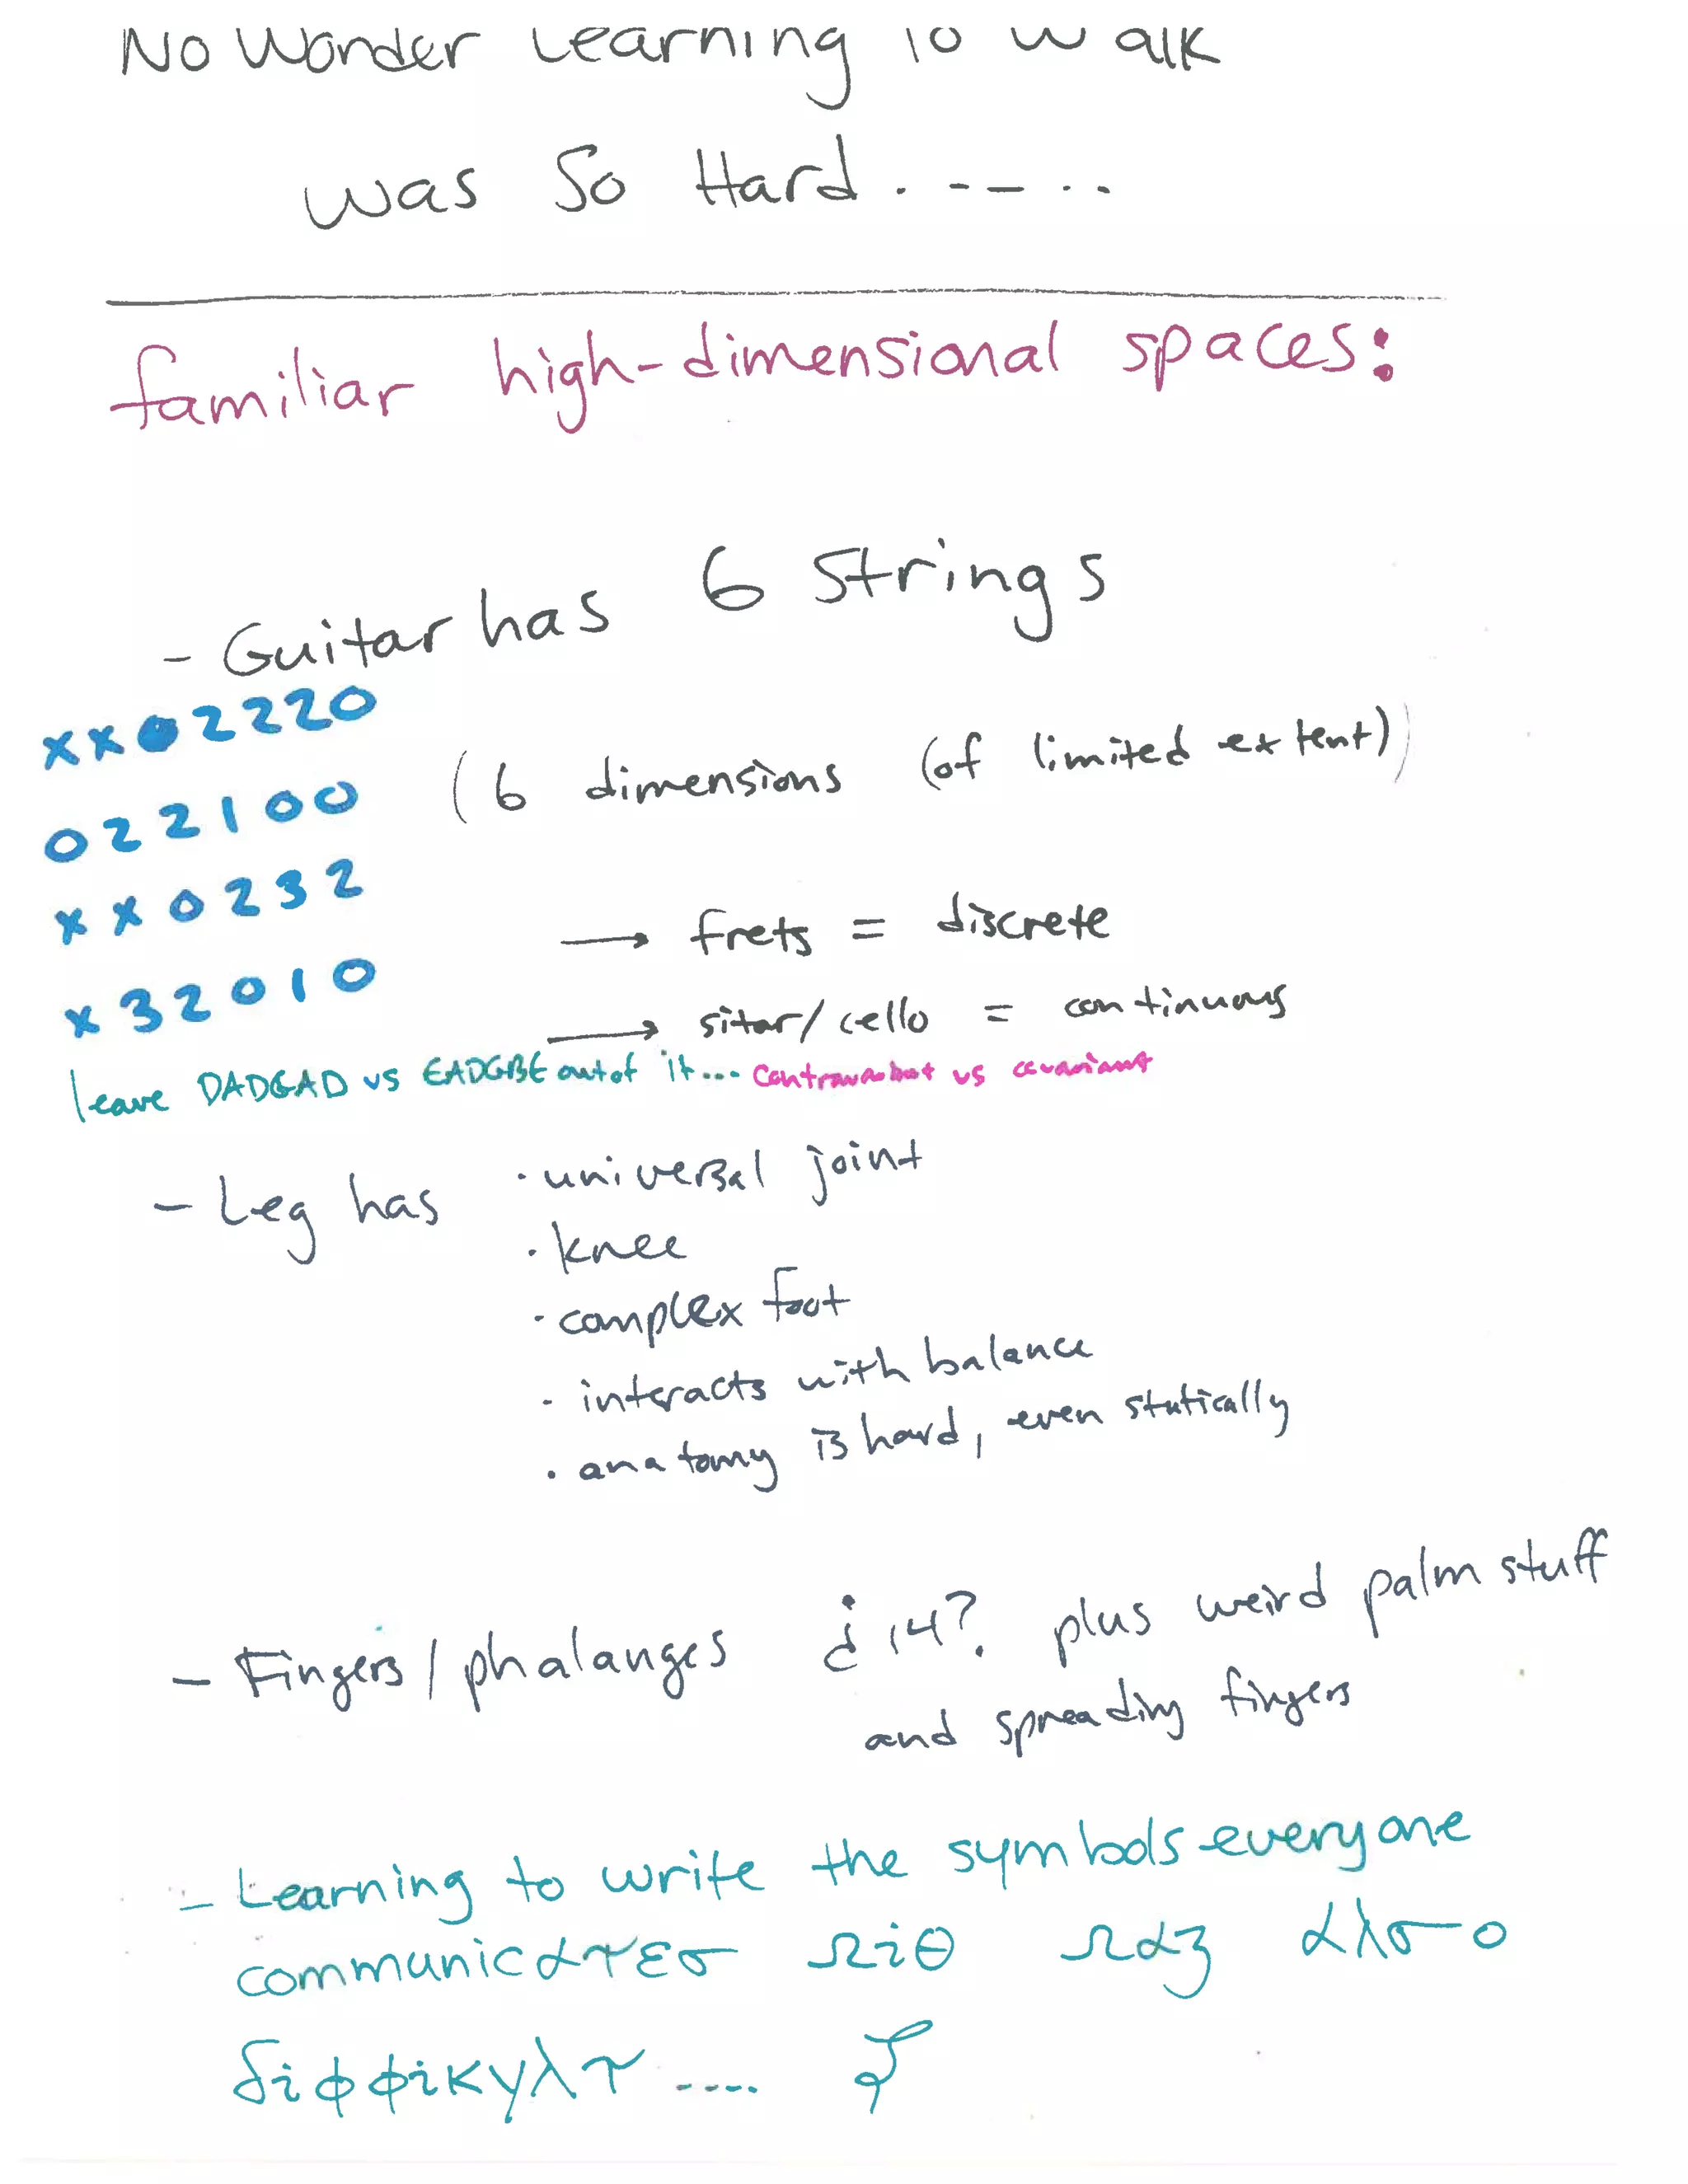 No Wonder Learning to Walk
was So Hard . - — . .
familiar high-dimensional spaces:
- Guitar has 6 strings
xx02220
(6 dimensions (of limited extent))
022100
xx0232
→ frets = discrete
x32010
→ sitar/cello = continuous
leave DADGAD vs EADGBE out of it... contravariant vs covariant
- Leg has · universal joint
· knee
· complex foot
· interacts with balance
· anatomy is hard, even statically
- Fingers/phalanges ¿14? plus weird palm stuff
and spreading fingers
- Learning to write the symbols everyone
communicατεσ Ωiθ Ωαʒ αλσο
δiφφiκγλτ ....